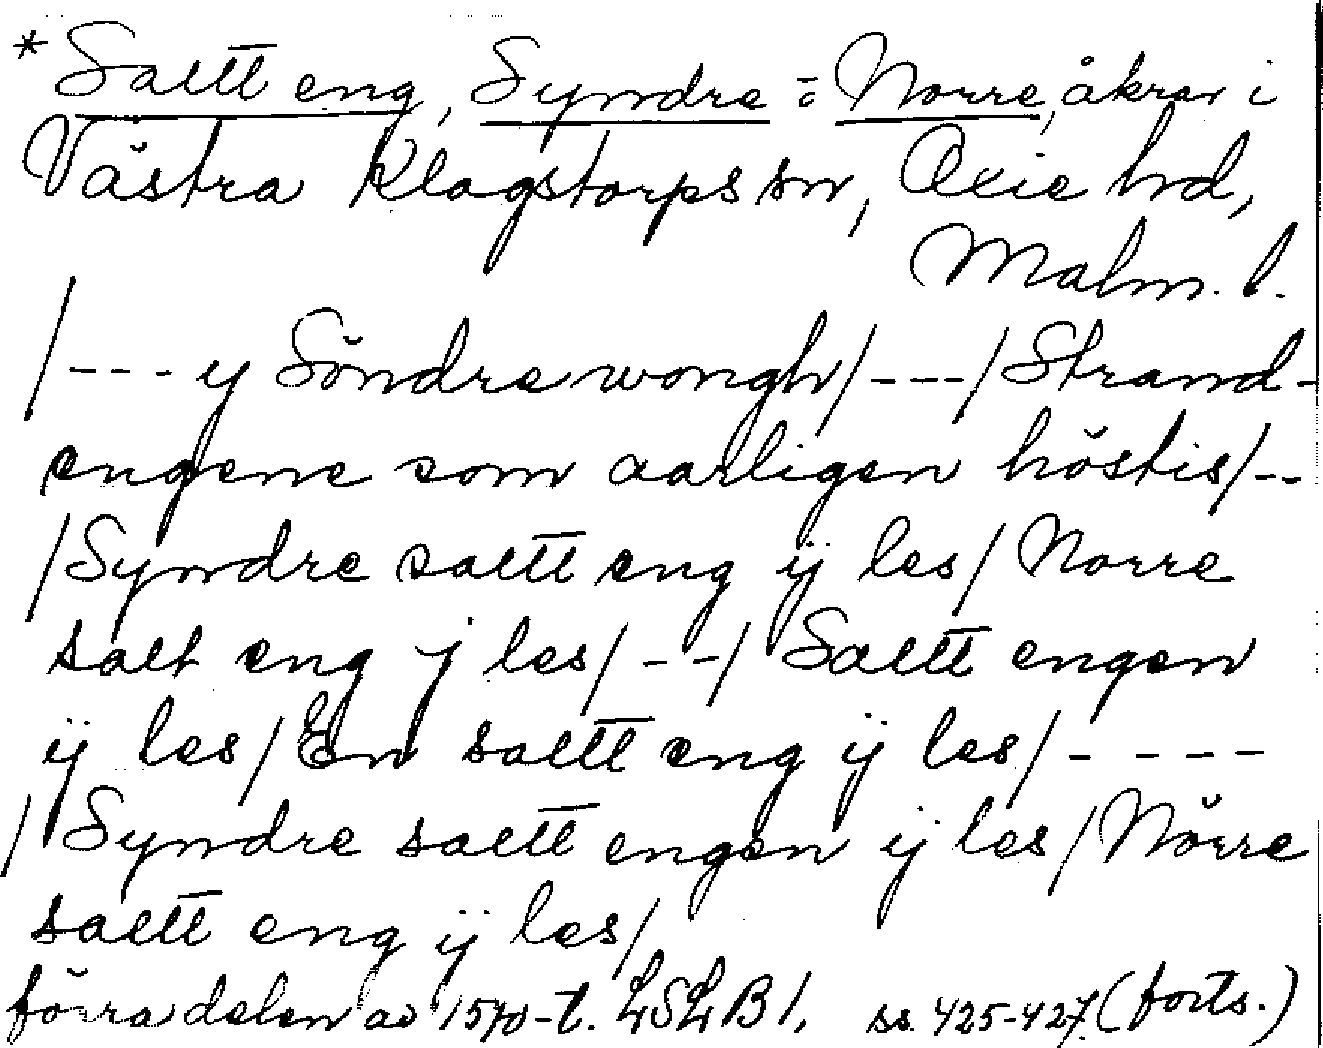 *Saltt eng, Syndre = Norre, åkrar i
Västra Klagstorps sn, Oxie hd,
Malm. l.
/--- y Söndre wongh/---/Strand-
engene som aarligen höstis/--
/Syndre saltt eng ij les/Norre
salt eng j les/--/Saltt engen
ij les/En saltt eng ij les/----
/Syndre saltt engen ij les/Nörre
saltt eng ij les/
förra delen av 1570-t. LSLB1, ss. 425-427. (forts.)